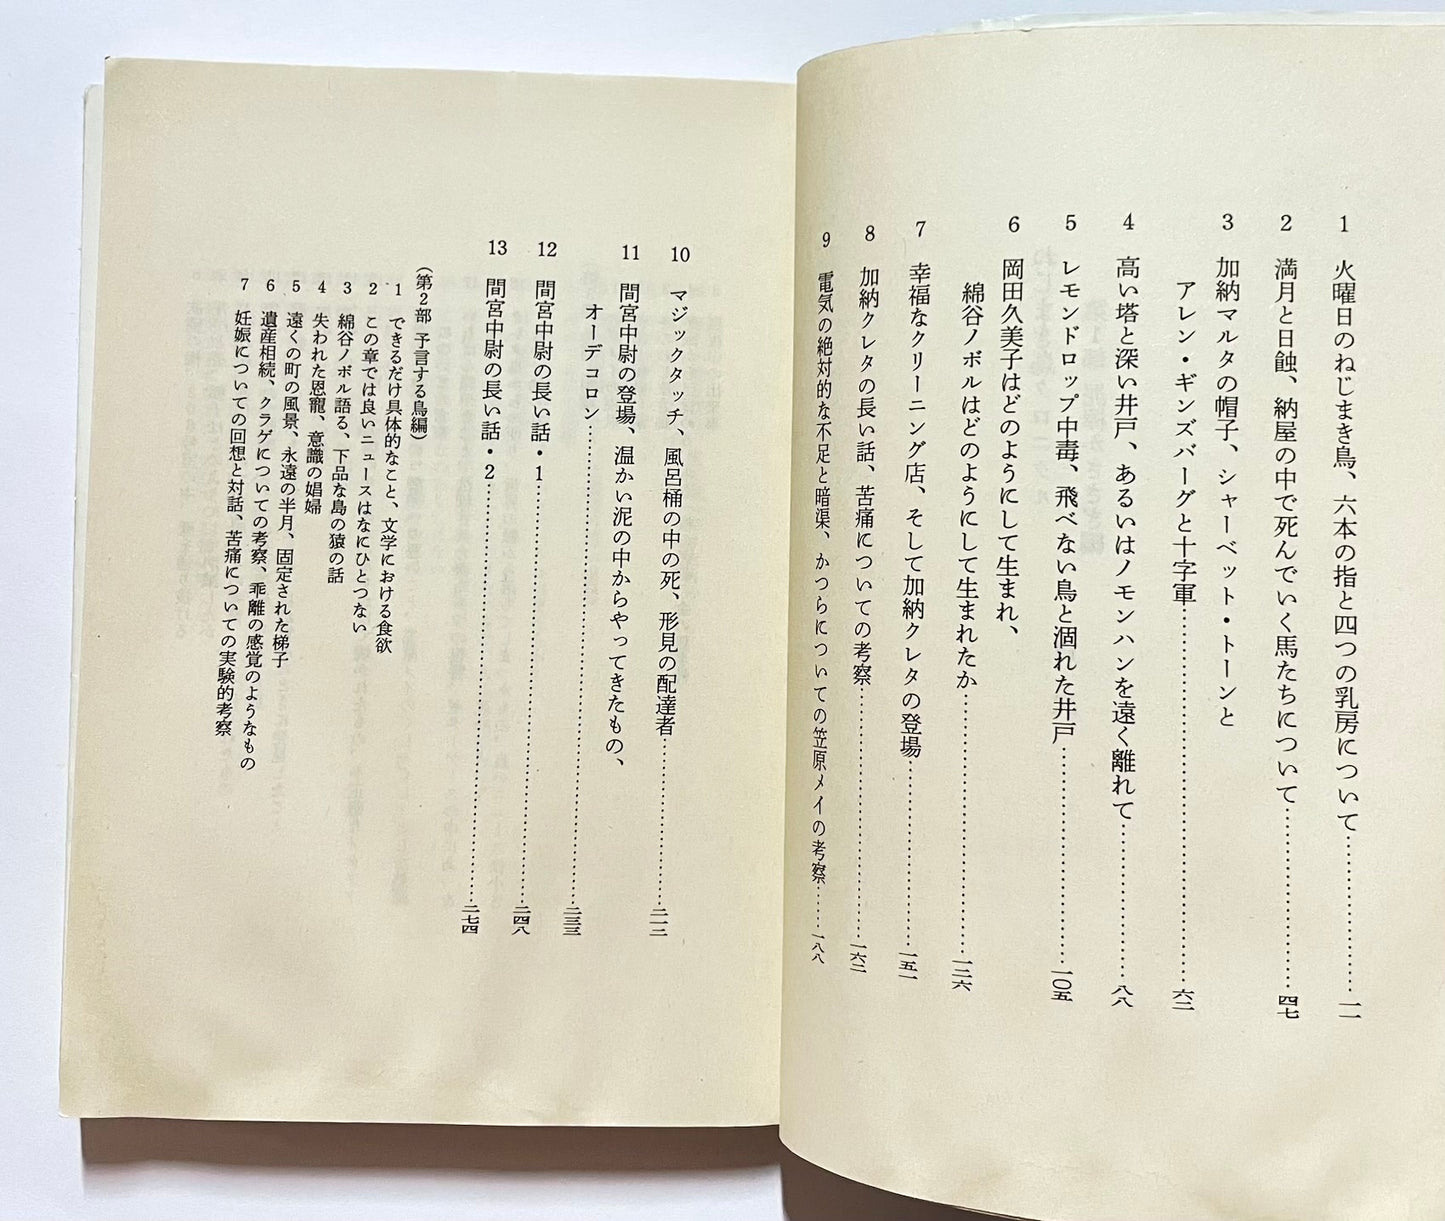 1 火曜日のねじまき鳥、六本の指と四つの乳房について……………一一
2 満月と日蝕、納屋の中で死んでいく馬たちについて……………四七
3 加納マルタの帽子、シャーベット・トーンと
アレン・ギンズバーグと十字軍……………六二
4 高い塔と深い井戸、あるいはノモンハンを遠く離れて……………八八
5 レモンドロップ中毒、飛べない鳥と涸れた井戸……………一〇五
6 岡田久美子はどのようにして生まれ、
綿谷ノボルはどのようにして生まれたか……………一二六
7 幸福なクリーニング店、そして加納クレタの登場……………一五一
8 加納クレタの長い話、苦痛についての考察……………一六二
9 電気の絶対的な不足と暗渠、かつらについての笠原メイの考察……一八八
10 マジックタッチ、風呂桶の中の死、形見の配達者……………二一二
11 間宮中尉の登場、温かい泥の中からやってきたもの、
オーデコロン……………二三三
12 間宮中尉の長い話・1……………二四八
13 間宮中尉の長い話・2……………二七四
(第2部 予言する鳥編)
1 できるだけ具体的なこと、文学における食欲
2 この章では良いニュースはなにひとつない
3 綿谷ノボル語る、下品な島の猿の話
4 失われた恩寵、意識の娼婦
5 遠くの町の風景、永遠の半月、固定された梯子
6 遺産相続、クラゲについての考察、乖離の感覚のようなもの
7 妊娠についての回想と対話、苦痛についての実験的考察